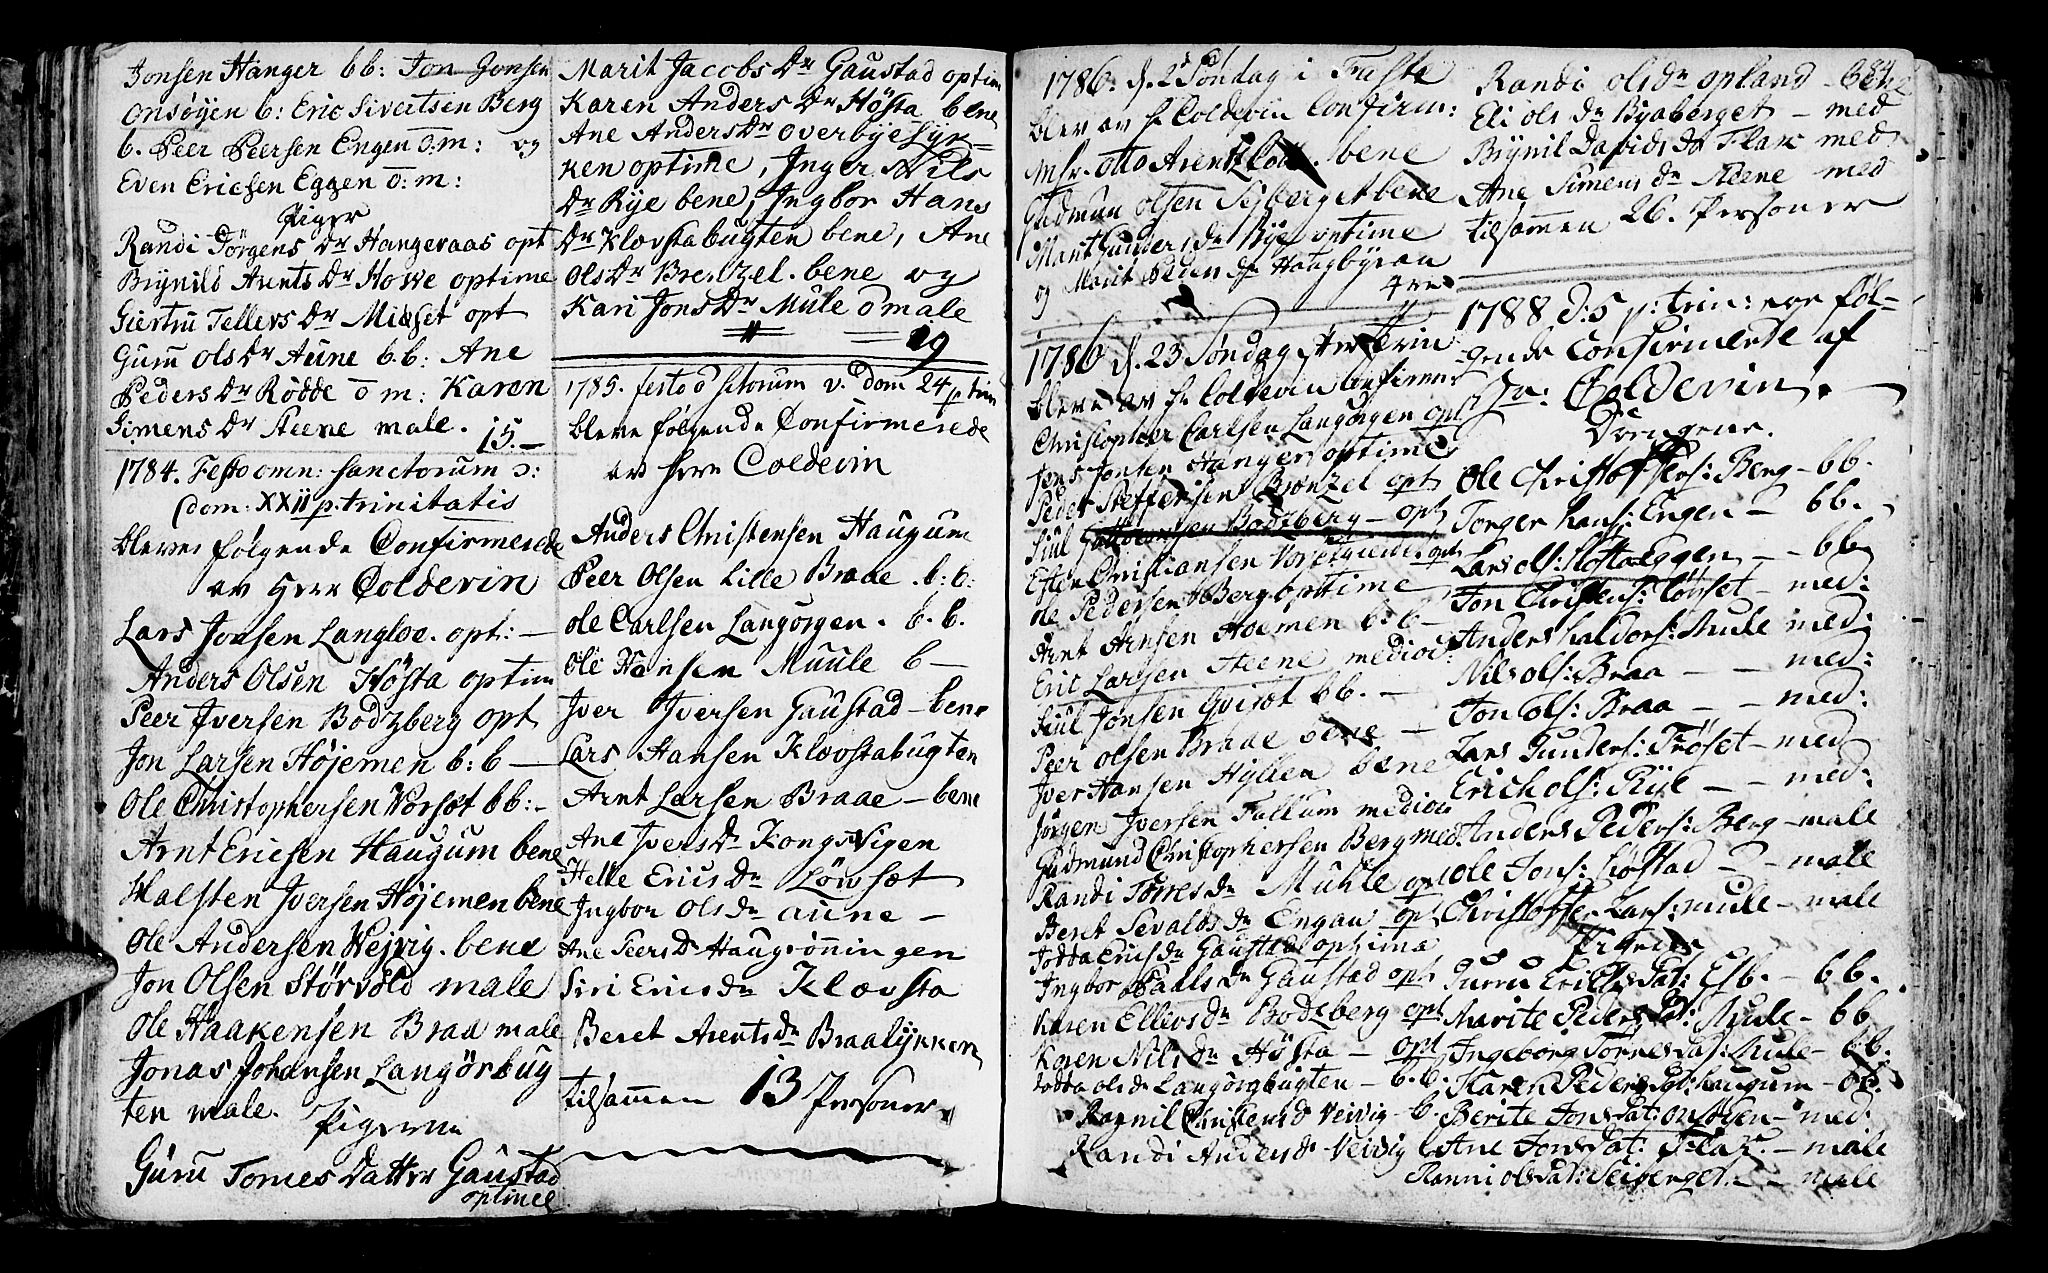 Jonsen Hanger bb: Jon Jonsen
Onsöyen b: Eric Sivertsen Berg
b. Peer Peersen Engen o: m: og
Even Ericsen Eggen o: m:
Piger
Randi Jörgens Dr Hangeraas opt
Brÿnild Arents Dr Howe optime
Giertru Tellevs Dr Midset opt
Guru Ols Dr Aune b.b: Ane
Peders Dr Rödde o m: Karen
Simens Dr Steene male.
15.—
1784. Festo omn: sanctorum ɔ:
dom: XXII p: trinitatis
bleve følgende Confirmerede
av Herr Coldevin
Lars Jonsen Langloe. opt: —
Anders Olsen Hösta optim
Peer Jversen Bodzberg opt
Jon Larsen Höjemen b: b —
Ole Christophersen Vorset bb: -
Arnt Ericsen Haugum bene
Halsten Jversen Höjemen bene
Ole Andersen Wejvig. bene
Jon Olsen Störvold male
Ole Haakensen Braa male
Jonas Johansen Langörbug
ten male.
Pigerne
Guru Tornes Datter Gaustad
optime
Marit Jacobs Dr Gaustad optim
Karen Anders Dr Hösta bene
Ane Anders Dr Overbye Lyk-
ken optime, Jnger Nils
Dr Rÿe bene, Jngbor Hans
Dr Klovstabugten bene, Ane
Ols Dr Brenzel. bene og
Kari Jons Dr Mule o male
19
1785. festo d sctorum v. dom 24 p trin
bleve følgende Confirmerede
av Herr Coldevin
Anders Christensen Haugum
Peer Olsen Lille Braae. b: b:
Ole Carlsen Langörgen. b. b.
Ole Hansen Muule b —
Jver Jversen Gaustad — bene
Lars Hansen Klovstabugten
Arnt Larsen Braae — bene
Ane Jvers Dr Kongsvigen
Helle Erics Dr Lövset
Jngbor Ols dr Aune —
Ane Peers Dr Haugrönningen
Siri Erics dr Klovsta
Beret Arents dr Braalÿkken
tilsammen 13 Personer
1786. d. 2d Söndag i Faste
blev av H Coldevin Confirm:
Msr. Otto Arentz bene
Gudmun Olsen Sejberget bene
Marit Gunders dr Rÿe optime
og Marit Peders dr Haugbÿran
4re
1786 d. 23 Söndag efter Trin
bleve av Hr Coldevin Confirmer
Christopher Carlsen Langörgen opt
Jens Jonsen Hanger optime
Peder Steffensen Brenzel opt
Siul Bodzberg — opt
Christiansen opt
Ole Pedersen Berg optime
Arnt Arnsen Hoemen b. b —
Eric Larsen Steene medioc:
Siul Jonsen Qviset bb. —
Peer Olsen Braae bene —
Jver Hansen Hyllen bene
Jörgen Jversen Fallum medioc
Gudmund Christophersen Berg med.
Randi Torres dr Muhle opt
Beret Sevalds dr Engan opt
Jodda Erics dr Gaustad optima
Jngbor Paals dr Gaustad opt
Karen Ellevs dr Bodzberg opt
Karen Nils dr Hösta — opt
Jodda Ols dr Langörgbugten — b. b.
Ragnil Christens dr Veivig — b.
Randi Anders dr Veivig b
84
Randi Ols dr Opland — bene
Eli Ols dr Bÿaberget — med
Brÿnil Davids dr Flak med
Ane Simens dr Steene med
tilsammen 26. Personer
1788 D: 5 p: trin: ere föl-
gende Confirmerede af
Hr: Coldevin.
Drengene.
Ole Christophers: Berg — bb.
Torger Hans: Engen — bb.
Lars Ols: Hösta eggen — bb
Jon Christens: Lövset — med:
Anders Haldors: Mule med:
Nils Ols: Braa — — med:
Jon Ols: Braa — — med:
Lars Gunders: Fröset — med
Erich Ols: Rÿe — — med:
Anders Peders: Berg — male
Ole Jons: Löfstad — — male
Christoffer Lars: Mule — male
Pigerne
Gurru Erichs Dat: Esb. — bb.
Marite Peders Dat: Mule — bb
Ingeborg Tornes Dat: Mule — bb.
Karen Peders Dat: Haugum — b:
Berite Jons Dat: Onsöyen — med:
Ane Jons Dat: Flak. — male
Ranni Ols Dat: Seiberget — — male